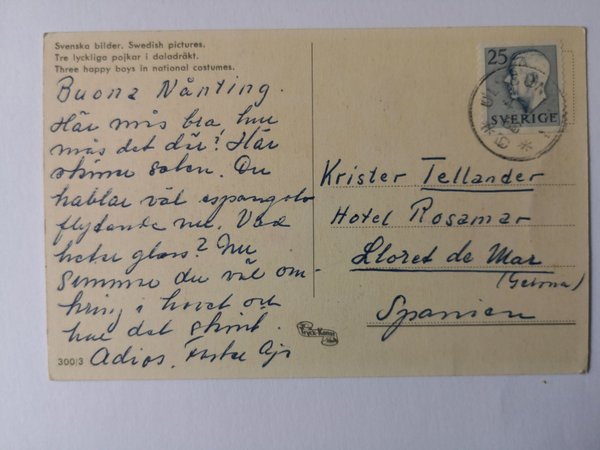 Svenska bilder. Swedish pictures.
Tre lyckliga pojkar i daladräkt.
Three happy boys in national costumes.
Buona Nånting.
Här mås bra, hur
mås det där? Här
skiner solen. Du
hablar väl espangolo
flytande nu. Vad
heter glass? Nu
simmar du väl om-
kring i havet och
har det skönt.
Adios.
300/3
25
SVERIGE
Krister Tellander
Hotel Rosamar
Lloret de Mar
(Gerona)
Spanien